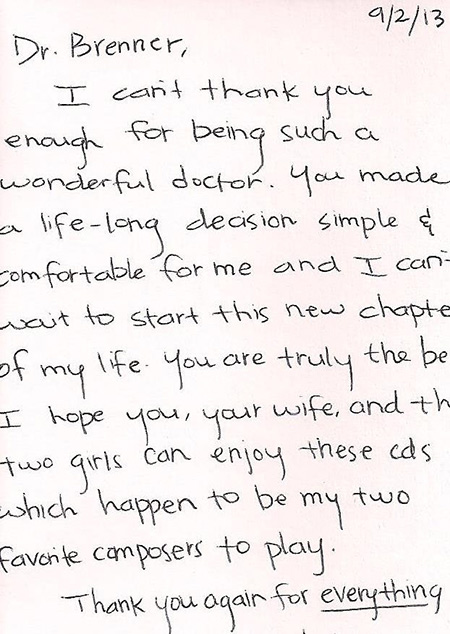 9/2/13
Dr. Brenner,
I can't thank you
enough for being such a
wonderful doctor. You made
a life-long decision simple &
comfortable for me and I can't
wait to start this new chapte
of my life. You are truly the be
I hope you, your wife, and th
two girls can enjoy these cds
which happen to be my two
favorite composers to play.
Thank you again for everything